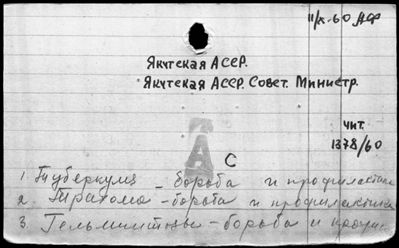 11/X-60
Якутская АССР.
Якутская АССР. Совет. Министр.
чит.
1378/60
А С
1. Туберкулез - борьба и профилактика
2. Трахома - борьба и профилактика
3. Гельминтозы - борьба и